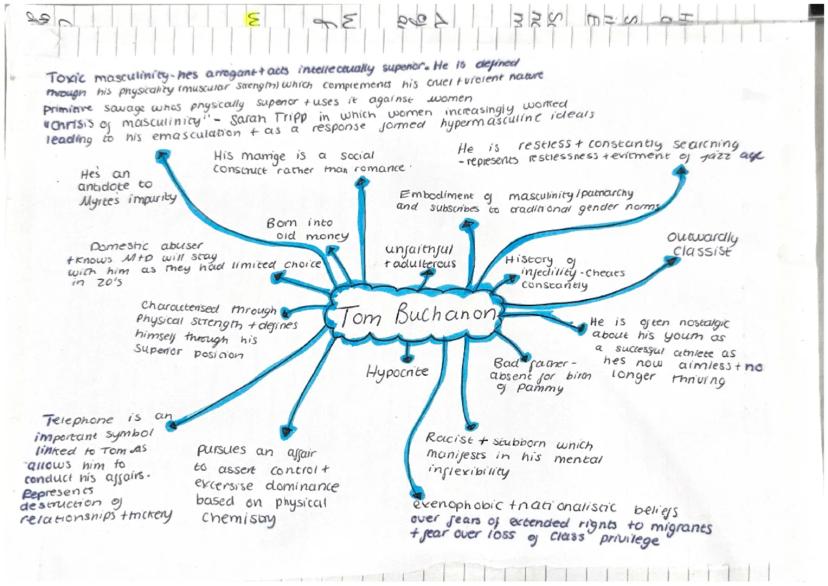 Toxic masculinity - hes arrogant + acts intellectually superior. He is defined
through his physicality (muscular strength) which complements his cruel + violent nature
primitive savage whos physically superior + uses it against women
"Chrisis of masculinity" - Sarah Tripp in which women increasingly worked
leading to his emasculation + as a response formed hypermasculine ideals
He is restless + constantly searching
- represents restlessness + exitment of jazz age
His marrige is a social
construct rather than romance.
He's an
antidote to
Myrtle's impurity
Embodiment of masculinity/patriarchy
and subscribes to traditional gender norms
Born into
old money
unfaithful
+ adulterous
History of
infedility - cheats
constantly
Outwardly
classist
Domestic abuser
+ knows M+D will stay
with him as they had limited choice
in 20's
Characterised through
physical strength + defines
himself through his
superior position
Tom Buchanon
He is often nostalgic
about his youth as
a successful athlete as
hes now aimless + no
longer thriving
Hypocrite
Bad father -
absent for birth
of pammy
Telephone is an
important symbol
linked to Tom as
allows him to
conduct his affairs.
Represents
destruction of
relationships +
pursues an affair
to assert control +
excersise dominance
based on physical
chemistry
Racist + stubborn which
manifests in his mental
inflexibility
exenophobic + nationalistic beliefs
over fears of extended rights to migrants
+ fear over loss of class privilege